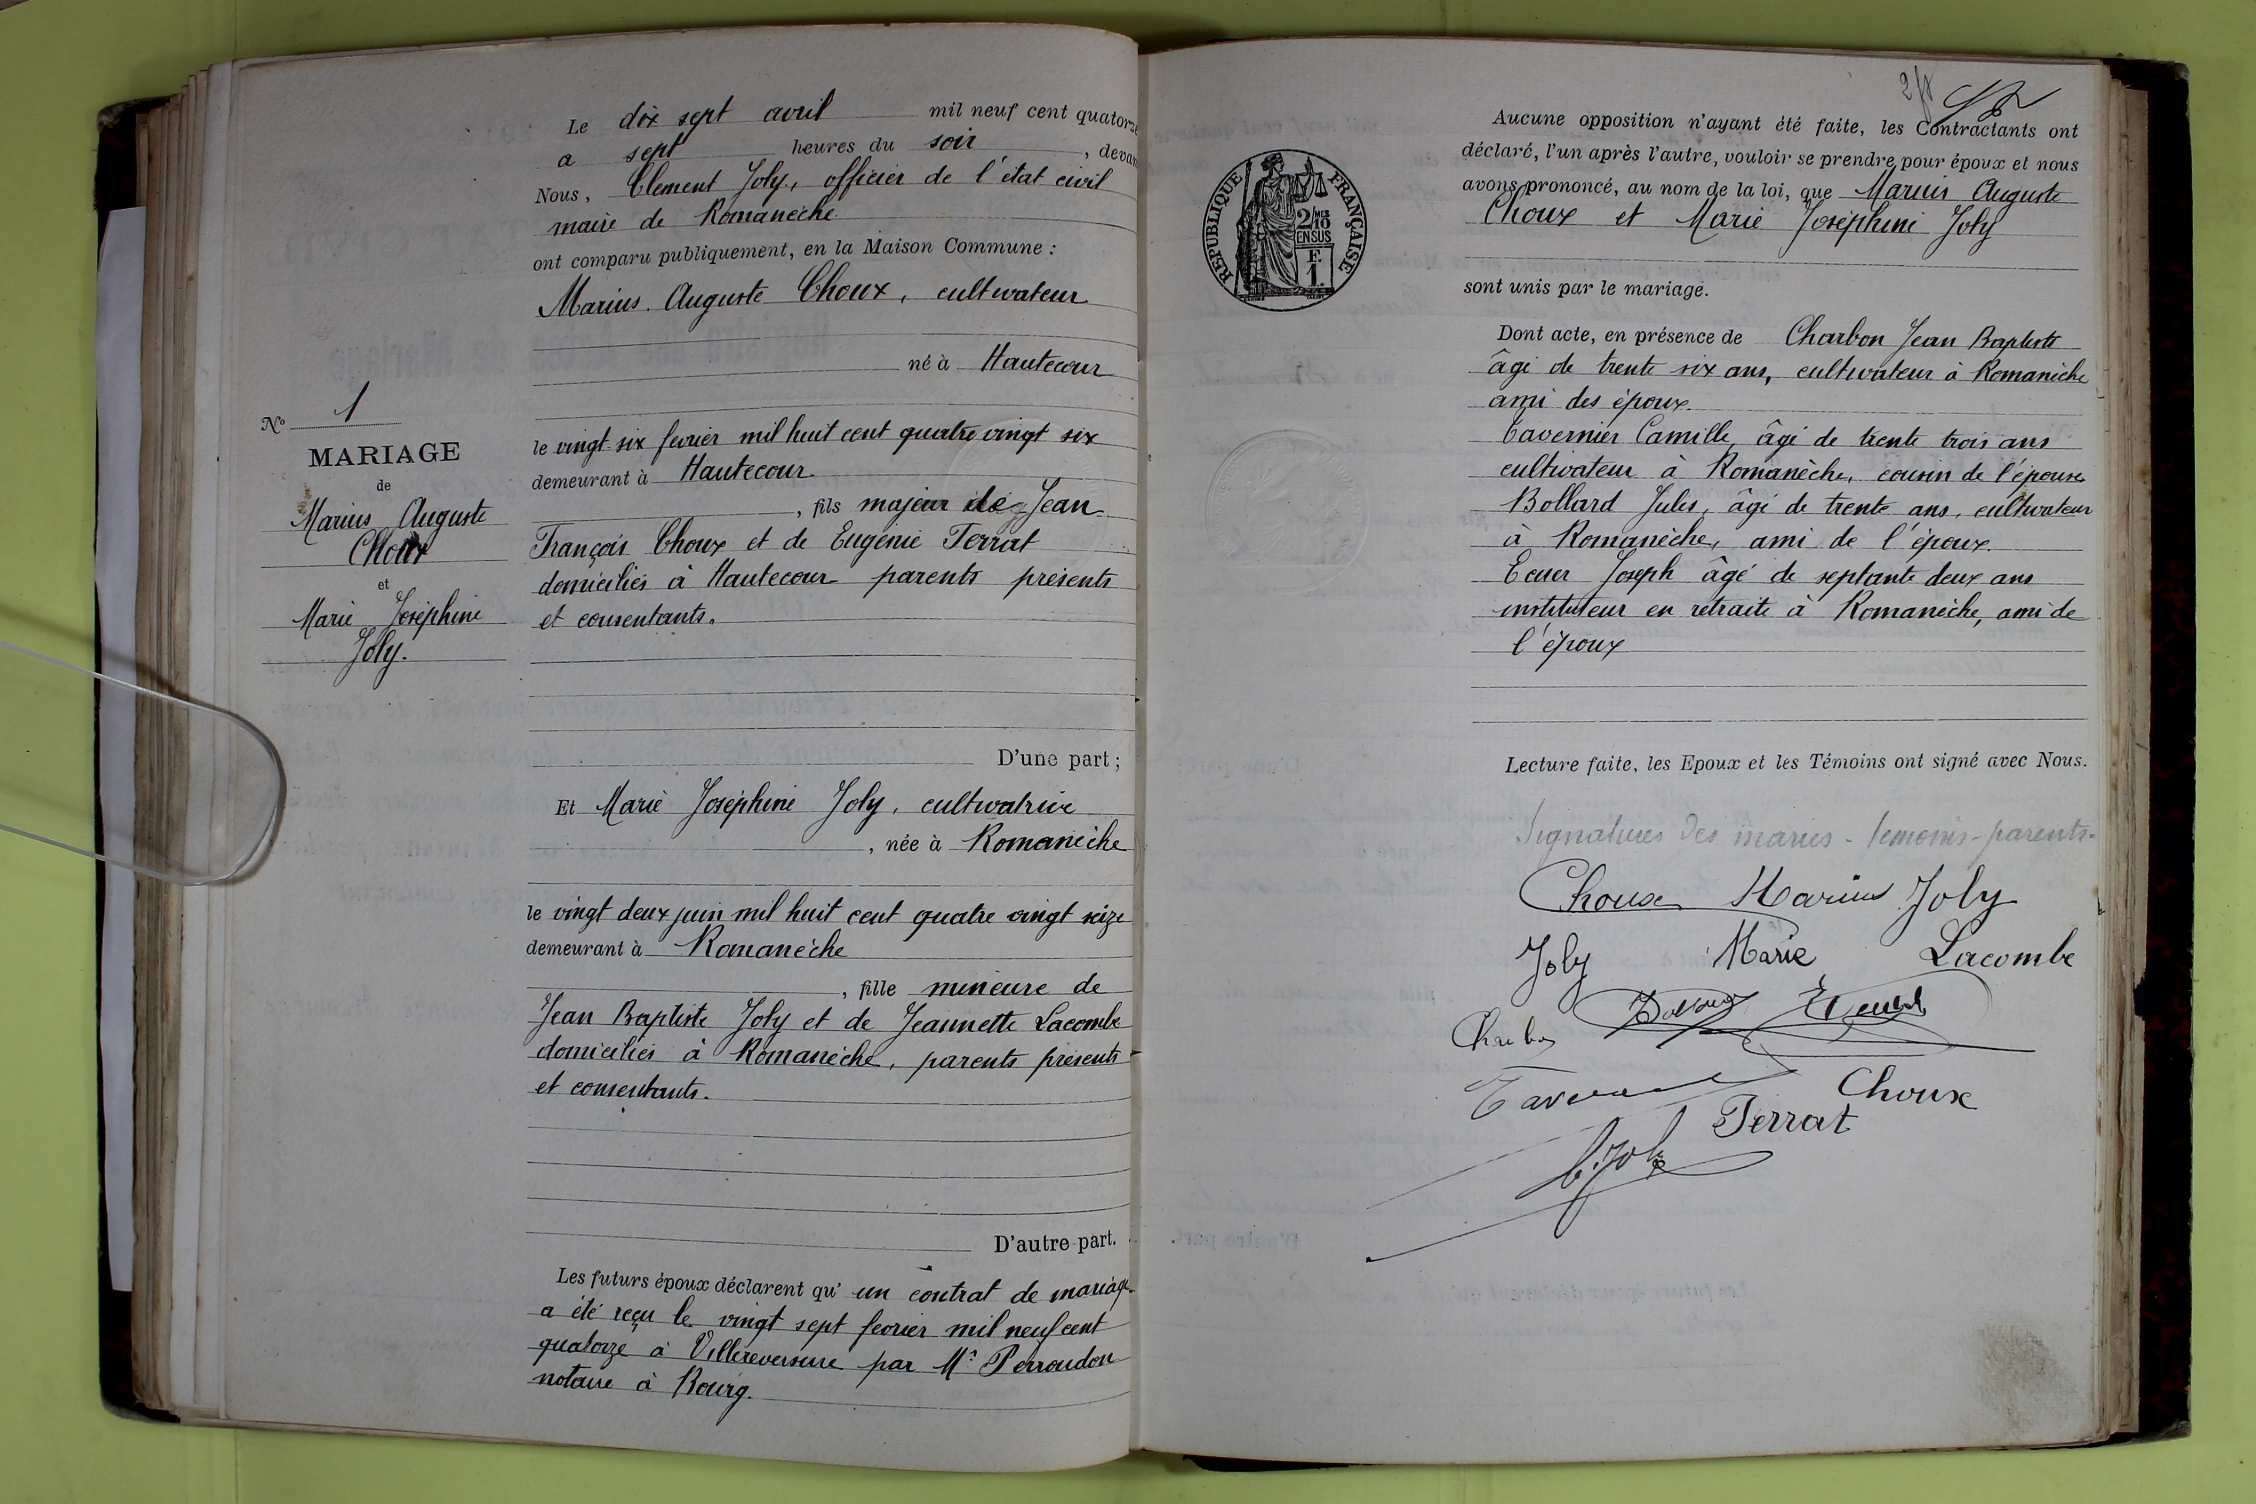 Le dix sept avril mil neuf cent quatorze
a sept heures du soir, devant
Nous, Clément Joly, officier de l'état civil
maire de Romanèche
ont comparu publiquement, en la Maison Commune :
Marius Auguste Choux, cultivateur
né à Hautecour
le vingt six fevrier mil huit cent quatre vingt six
demeurant à Hautecour
, fils majeur de Jean
François Choux et de Eugénie Terrat
domiciliés à Hautecour parents présents
et consentants.
D'une part ;
Et Marie Joséphine Joly, cultivatrice
, née à Romanèche
le vingt deux juin mil huit cent quatre vingt seize
demeurant à Romanèche
, fille mineure de
Jean Baptiste Joly et de Jeannette Lacombe
domiciliés à Romanèche, parents présents
et consentants.
D'autre part.
Les futurs époux déclarent qu'un contrat de mariage
a été reçu le vingt sept fevrier mil neuf cent
quatorze à Villereversure par Me Perroudon
notaire à Bourg.
No 1
MARIAGE
de
Marius Auguste
Choux
et
Marie Joséphine
Joly.
RÉPUBLIQUE FRANÇAISE
2/10MES
EN SUS
F.
1.
Aucune opposition n'ayant été faite, les Contractants ont
déclaré, l'un après l'autre, vouloir se prendre pour époux et nous
avons prononcé, au nom de la loi, que Marius Auguste
Choux et Marie Joséphine Joly
sont unis par le mariage.
Dont acte, en présence de Charbon Jean Baptiste
âgé de trente six ans, cultivateur à Romanèche
ami des époux.
Tavernier Camille, âgé de trente trois ans
cultivateur à Romanèche, cousin de l'épouse
Bollard Jules, âgé de trente ans, cultivateur
à Romanèche, ami de l'époux.
Joseph âgé de septante deux ans
instituteur en retraite à Romanèche, ami de
l'époux
Lecture faite, les Epoux et les Témoins ont signé avec Nous.
Signatures des mariés - témoins - parents -
Choux Marius Joly
Joly Marie Lacombe
Charbon
Choux
Terrat
C. Joly